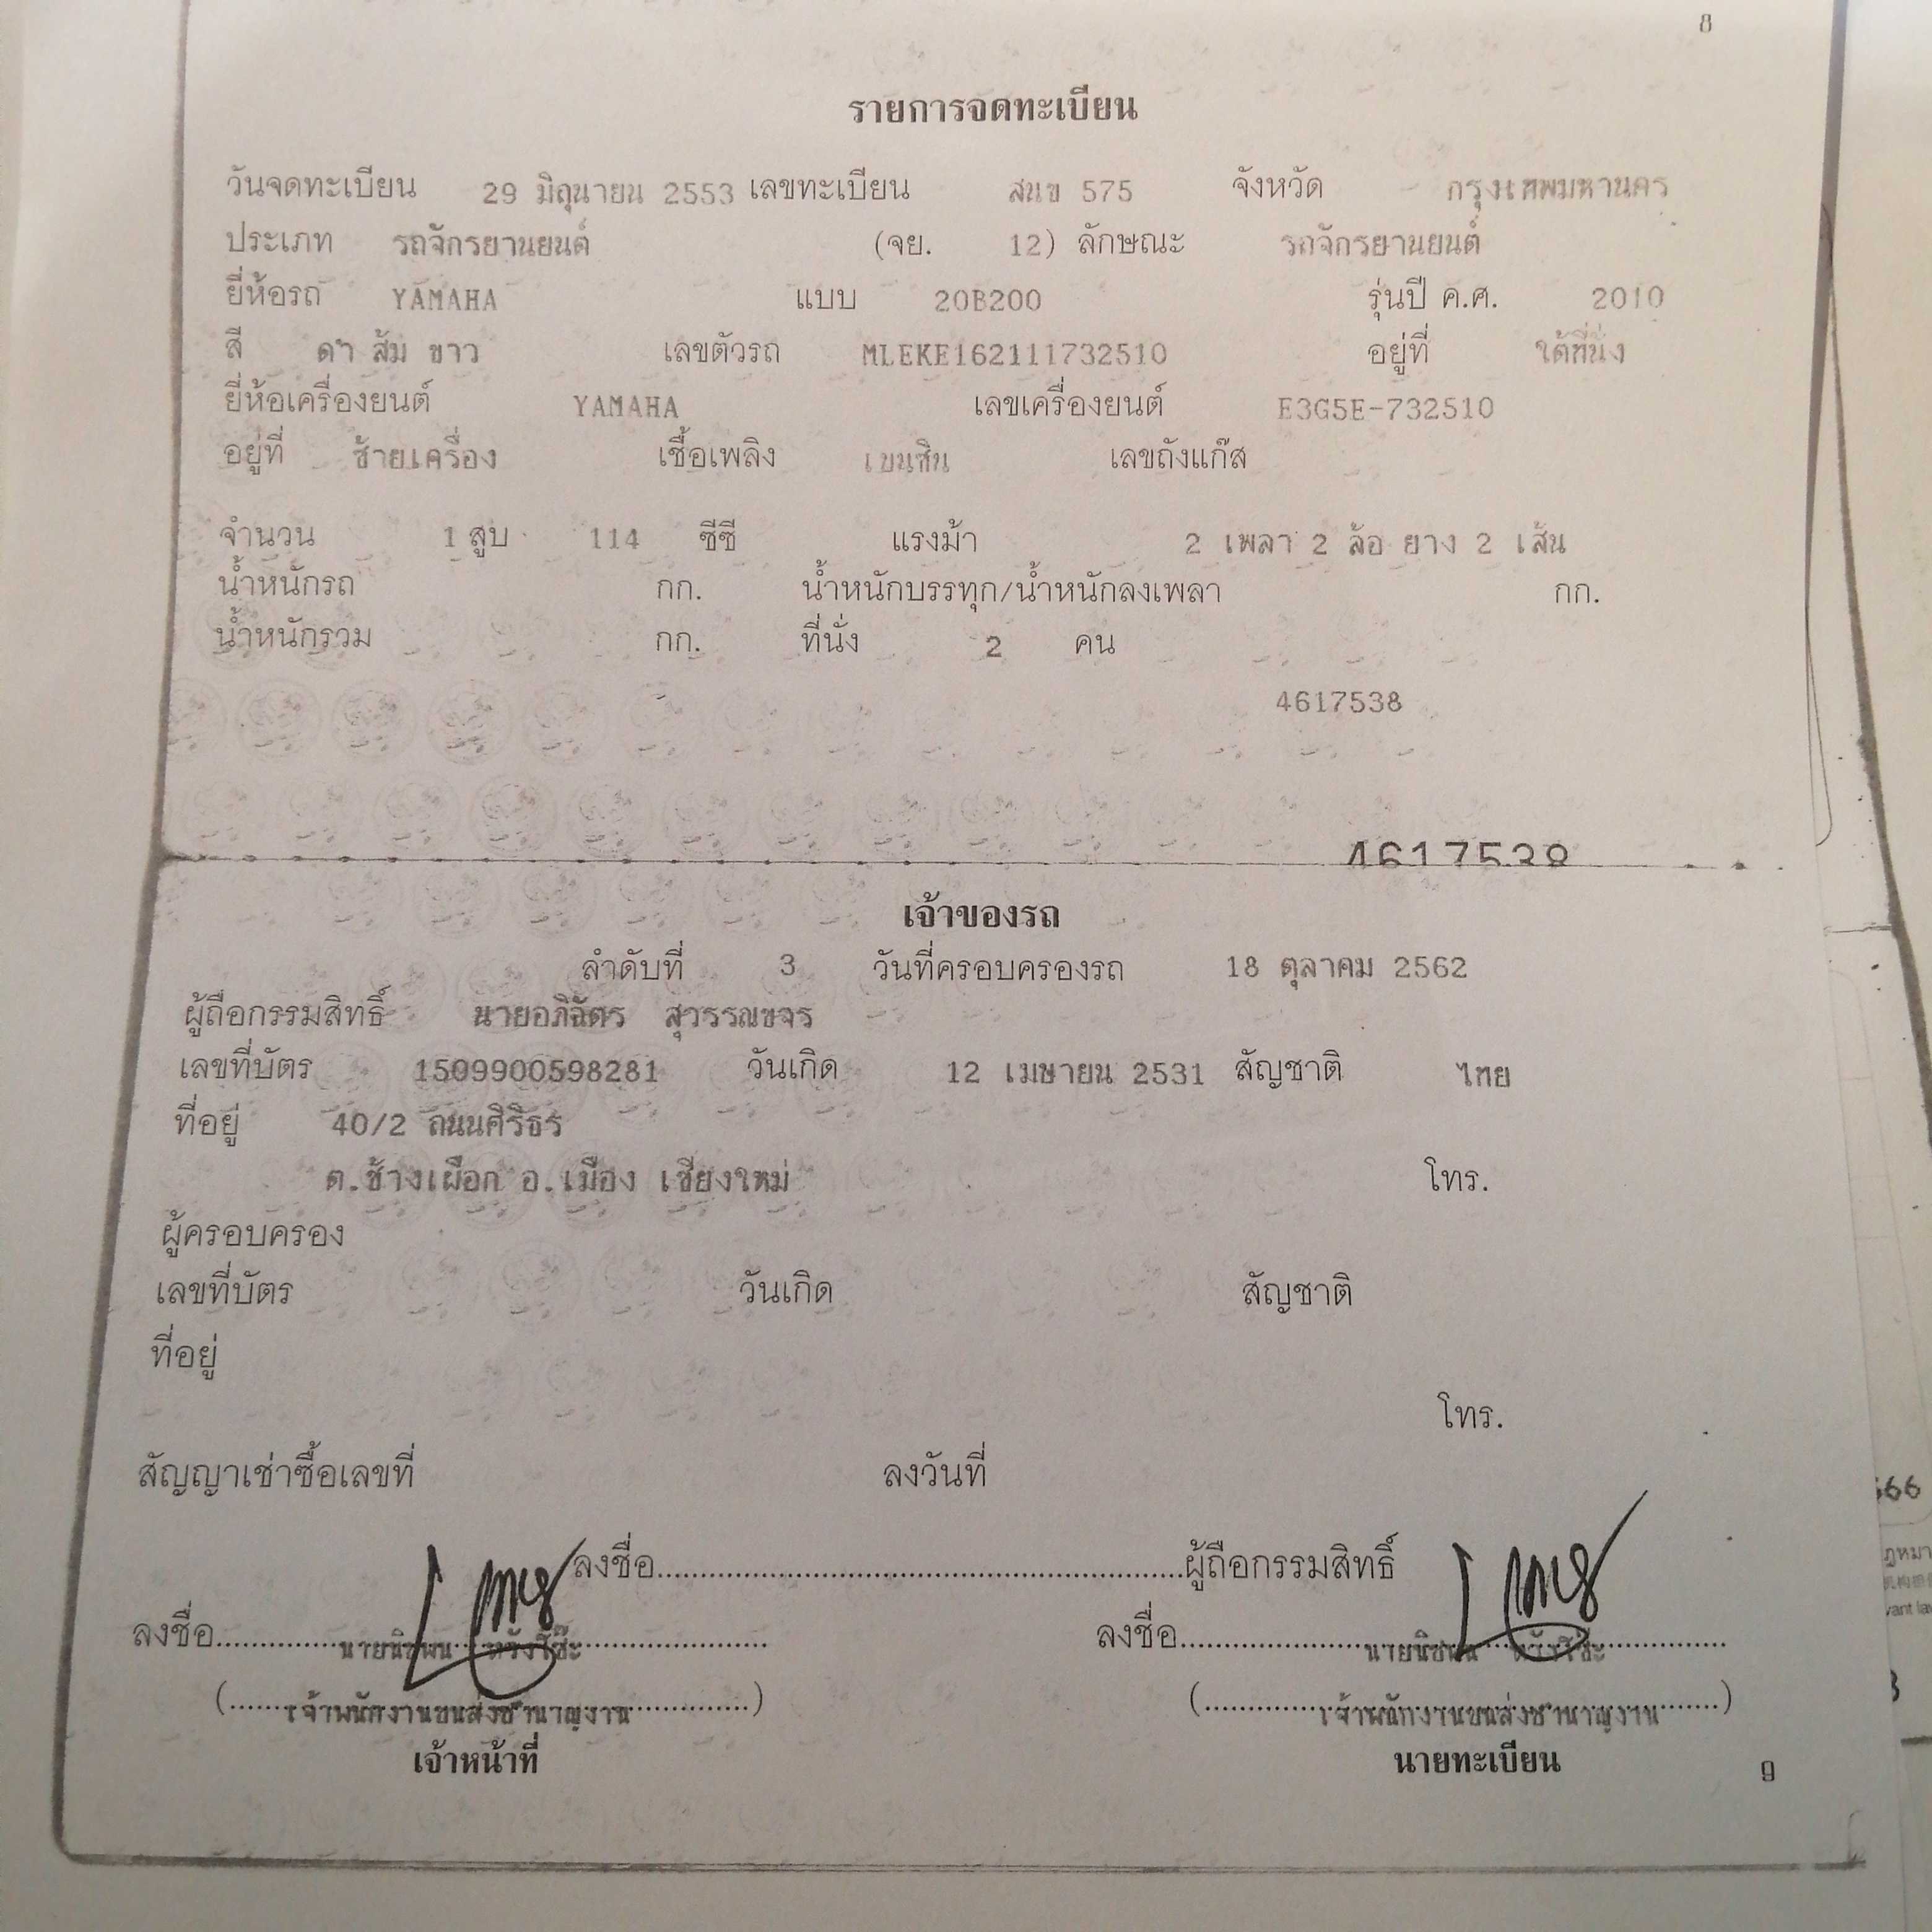 8
รายการจดทะเบียน
วันจดทะเบียน 29 มิถุนายน 2553 เลขทะเบียน สนข 575 จังหวัด กรุงเทพมหานคร
ประเภท รถจักรยานยนต์ (จย. 12) ลักษณะ รถจักรยานยนต์
ยี่ห้อรถ YAMAHA แบบ 20B200 รุ่นปี ค.ศ. 2010
สี ดำ ส้ม ขาว เลขตัวรถ MLEKE162111732510 อยู่ที่ ใต้ที่นั่ง
ยี่ห้อเครื่องยนต์ YAMAHA เลขเครื่องยนต์ E3G5E-732510
อยู่ที่ ซ้ายเครื่อง เชื้อเพลิง เบนซิน เลขถังแก๊ส
จำนวน 1 สูบ 114 ซีซี แรงม้า 2 เพลา 2 ล้อ ยาง 2 เส้น
น้ำหนักรถ กก. น้ำหนักบรรทุก/น้ำหนักลงเพลา กก.
น้ำหนักรวม กก. ที่นั่ง 2 คน
4617538
4617538
เจ้าของรถ
ลำดับที่ 3 วันที่ครอบครองรถ 18 ตุลาคม 2562
ผู้ถือกรรมสิทธิ์ นายอภิฉัตร สุวรรณขจร
เลขที่บัตร 1509900598281 วันเกิด 12 เมษายน 2531 สัญชาติ ไทย
ที่อยู่ 40/2 ถนนศิริธร
ต.ช้างเผือก อ.เมือง เชียงใหม่ โทร.
ผู้ครอบครอง
เลขที่บัตร วันเกิด สัญชาติ
ที่อยู่
โทร.
สัญญาเช่าซื้อเลขที่ ลงวันที่
ลงชื่อ ผู้ถือกรรมสิทธิ์
ลงชื่อ ลงชื่อ
(เจ้าพนักงานขนส่งชำนาญงาน) (เจ้าพนักงานขนส่งชำนาญงาน)
เจ้าหน้าที่ นายทะเบียน
9